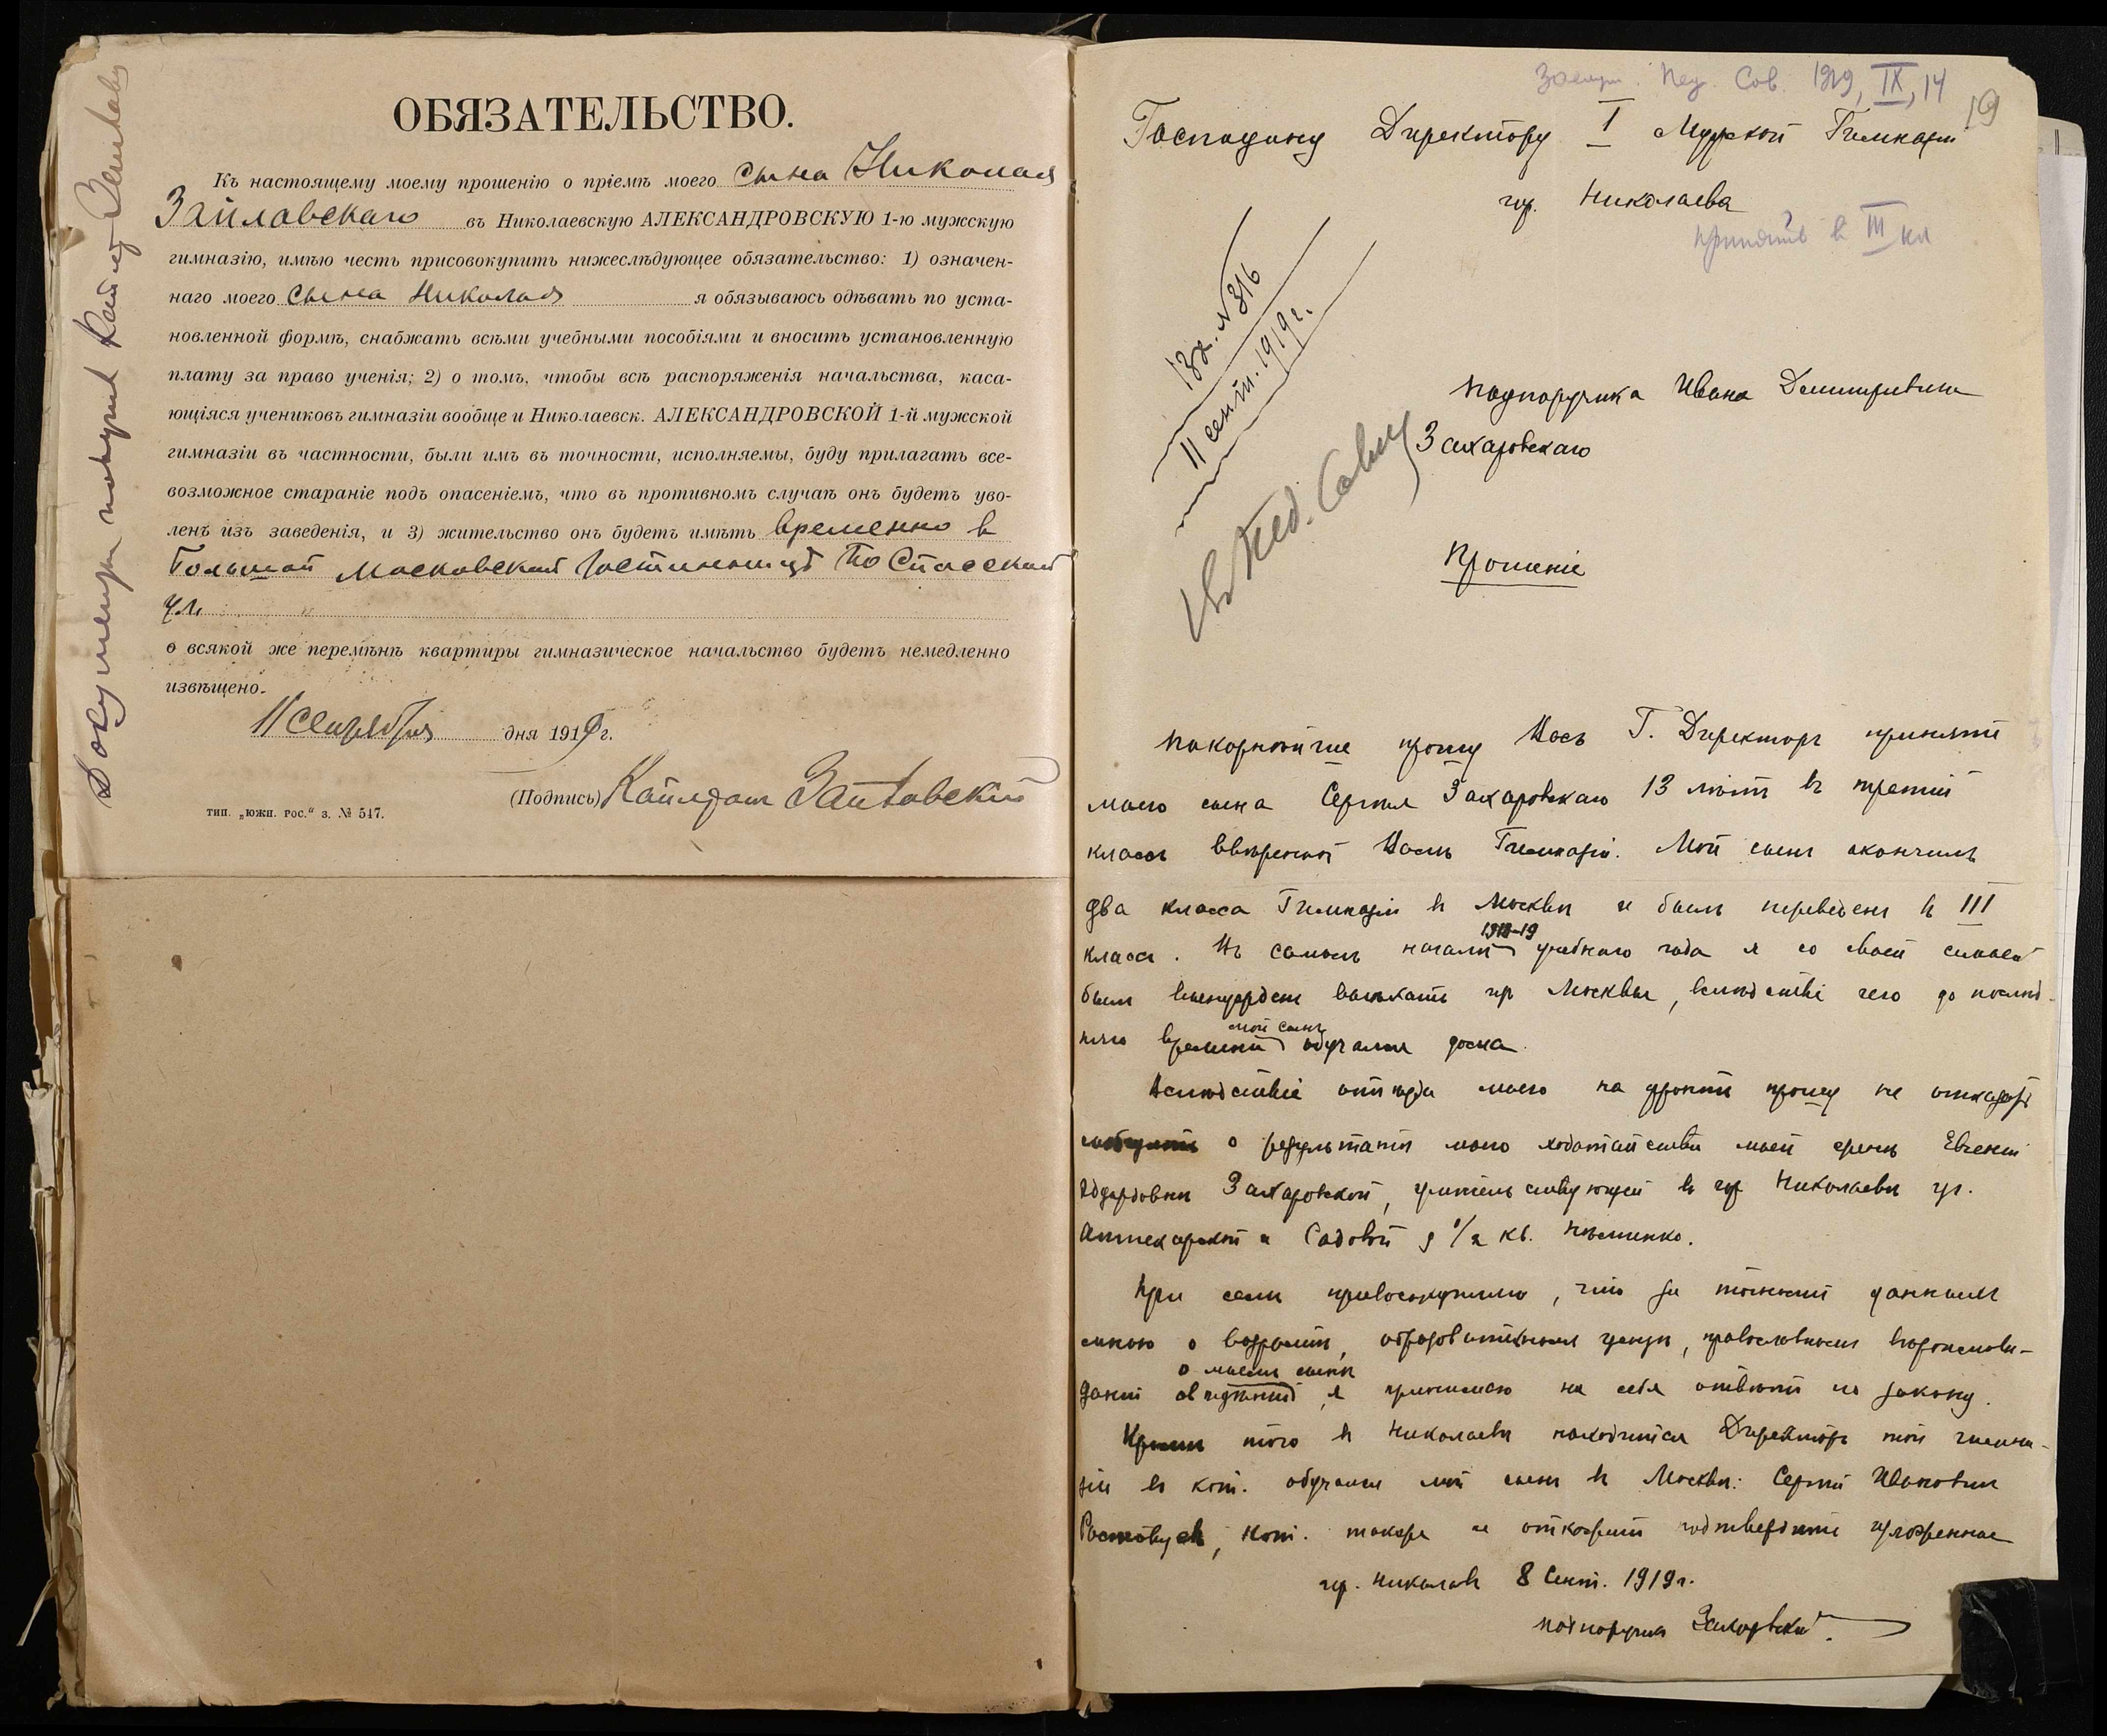 ОБЯЗАТЕЛЬСТВО.
Къ настоящему моему прошенію о пріемѣ моего сына Николая
Зайловскаго въ Николаевскую АЛЕКСАНДРОВСКУЮ 1-ю мужскую
гимназію, имѣю честь присовокупить нижеслѣдующее обязательство: 1) означен-
наго моего сына Николая я обязываюсь одѣвать по уста-
новленной формѣ, снабжать всѣми учебными пособіями и вносить установленную
плату за право ученія; 2) о томъ, чтобы всѣ распоряженія начальства, каса-
ющіяся учениковъ гимназіи вообще и Николаевск. АЛЕКСАНДРОВСКОЙ 1-й мужской
гимназіи въ частности, были имъ въ точности, исполняемы, буду прилагать все-
возможное стараніе подъ опасеніемъ, что въ противномъ случаѣ онъ будетъ уво-
ленъ изъ заведенія, и 3) жительство онъ будетъ имѣть временно в
Большой Московской гостинницѣ по Спасской
ул.
о всякой же перемѣнѣ квартиры гимназическое начальство будетъ немедленно
извѣщено.
11 сентября дня 1919 г.
(Подпись)
тип. „южн. рос.“ з. № 547.
Документы получил
Пед. Сов. 1919, IX, 14
19
Господину Директору I Мужской Гимназіи
гор. Николаева
принять в III кл
Вх. № 316
11 сент. 1919 г.
Въ Пед. Совѣт
Подпоручика Ивана Димитріевича
Захаровскаго
Прошеніе
Покорнѣйше прошу Васъ Г. Директоръ принять
моего сына Сергѣя Захаровскаго 13 лѣтъ въ третій
классъ ввѣренной Вамъ Гимназіи. Мой сынъ окончилъ
два класса Гимназіи въ Москвѣ и былъ переведенъ въ III
классъ. Въ самомъ началѣ 1918-19 учебнаго года я со своей семьей
былъ вынужденъ выѣхать изъ Москвы, вслѣдствіе чего до послѣд-
няго времени мой сынъ обучался дома.
Вслѣдствіе отъѣзда моего на фронтъ прошу не отказать
сообщить о результатѣ моего ходатайства моей женѣ Евгеніи
Эдуардовнѣ Захаровской, жительствующей въ гор Николаевѣ уг.
Аптекарской и Садовой д 1/2 кв.
При семъ присовокупляю, что за точность данныхъ
мною о возрастѣ, образовательномъ цензѣ, православномъ вѣроисповѣ-
даніи о моемъ сынѣ свѣдѣній, я принимаю на себя отвѣтъ по закону.
Кромѣ того въ Николаевѣ находится Директоръ той гимна-
зіи въ кот. обучался мой сынъ въ Москвѣ: Сергѣй Ивановичъ
кот. также не откажетъ подтвердить изложенное
гор. Николаевъ 8 Сент. 1919 г.
подпоручикъ Захаровскій.